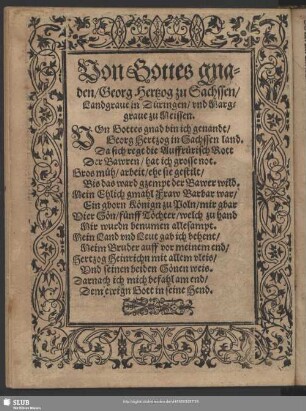 Von Gottes gna-
den/ Georg Hertzog zu Sachssen/
Landgraue in Düringen/ vnd Marg-
graue zu Meissen.
Von Gottes gnad bin ich genandt/
Georg Hertzog in Sachssen land.
Da sich regt die Auffrürisch Rott
Der Bawren/ hat ich grosse not.
Gros müh/ arbeit/ ehe sie gestilt/
Bis das ward gzempt der Bawer wild.
Mein Ehlich gmahl Fraw Barbar war/
Ein geborn Königin zu Poln/ mir gbar
Vier Sön/ fünff Töchter/ welch zu hand
Mir wurdn benumen allesampt.
Mein Land vnd Leut gab ich behent/
Meim Bruder auff vor meinem end/
Hertzog Heinrichn mit allem vleis/
Vnd seinen beiden Sönen weis.
Darnach ich mich befahl am end/
Dem ewign Gott in seine Hend.
SLUB
Wir führen Wissen.